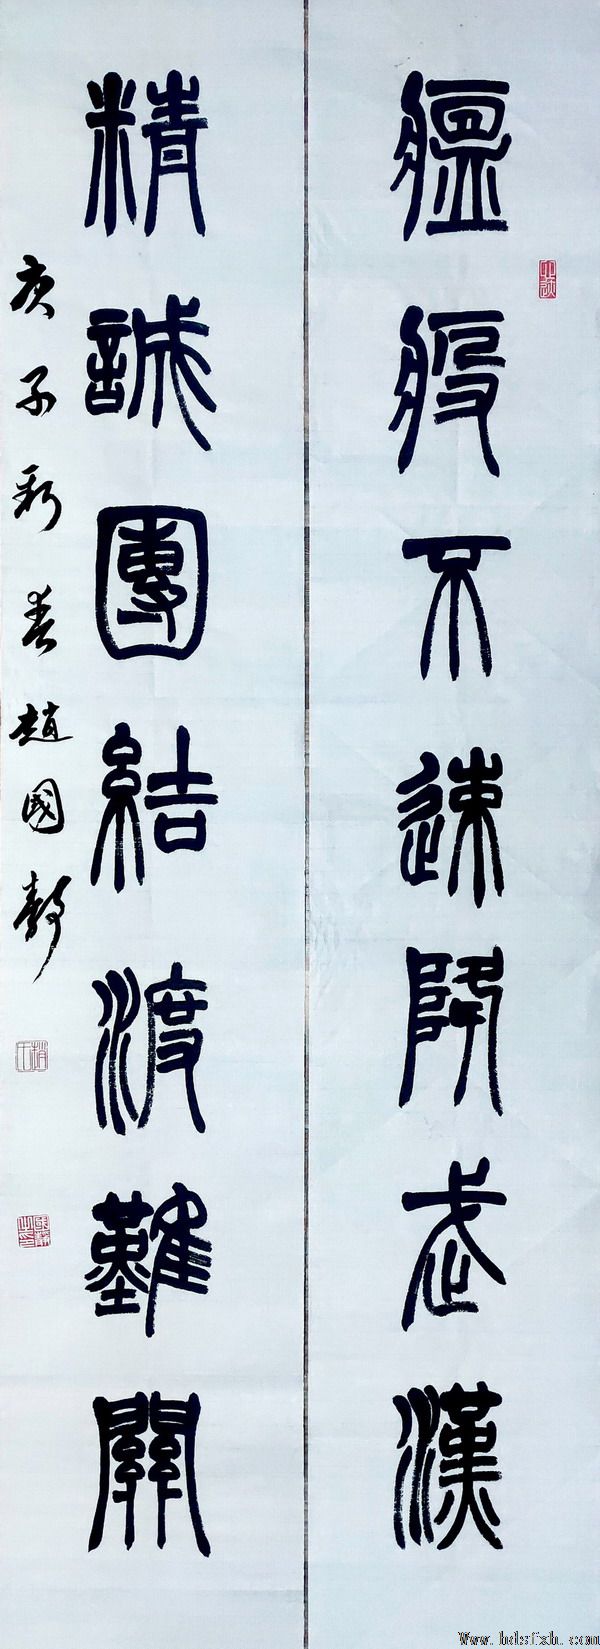 瘟疫不速鬧武漢
精誠團結渡難關
庚子新春趙國靜
Www.hdsfxh.com